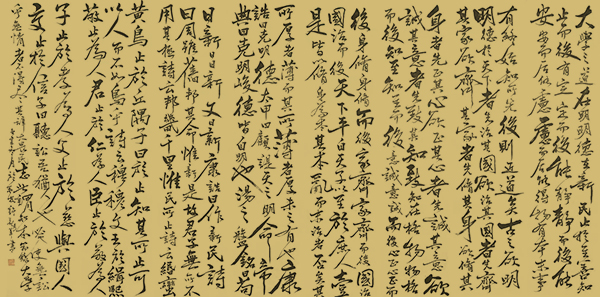 大學之道在明明德在新民在止於至善知
止而后有定定而后能靜靜而后能
安安而后能慮慮而后能得物有本末事
有終始知所先後則近道矣古之欲明
明德於天下者先治其國欲治其國者先齊
其家欲齊其家者先脩其身欲脩其
身者先正其心欲正其心者先誠其意欲
誠其意者先致其知致知在格物物格
而后知至知至而后意誠意誠而后心正心正而
后身脩身脩而后家齊家齊而后國治
國治而后天下平自天子以至於庶人壹
是皆以脩身為本其本亂而末治者否矣其
所厚者薄而其所薄者厚未之有也康
誥曰克明德太甲曰顧諟天之明命帝
典曰克明峻德皆自明也湯之盤銘曰苟
日新日日新又日新康誥曰作新民詩
曰周雖舊邦其命惟新是故君子無所不
用其極詩云邦畿千里惟民所止詩云緡蠻
黃鳥止於丘隅子曰於止知其所止可
以人而不如鳥乎詩云穆穆文王於緝熙
敬止為人君止於仁為人臣止於敬為人
子止於孝為人父止於慈與國人
交止於信子曰聽訟吾猶人也必也使無訟
乎無情者不得盡其辭大畏民志此謂知本 大學